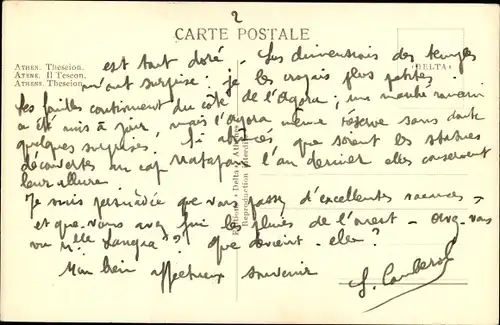 2
CARTE POSTALE
ATHEN. Theseion.
ATENE. Il Teseon.
ATHENS. Theseion.
DELTA
est tout doré. Les dimensions des temples
m'ont surprise : je les croyais plus petites.
Les fouilles continuent du côté de l'Agora ; un marché romain
a été mis à jour, mais l'agora même réserve sans doute
quelques surprises. Si abîmées que soient les statues
découvertes au cap Matapan l'an dernier elles conservent
leur allure.
Je suis persuadée que vous passez d'excellentes vacances –
et que vous avez fui les pluies de l'ouest – Avez-vous
vu Mlle ? Que devient-elle ?
Mon bien affectueux souvenir
Editions Delta
Reproduction interdite